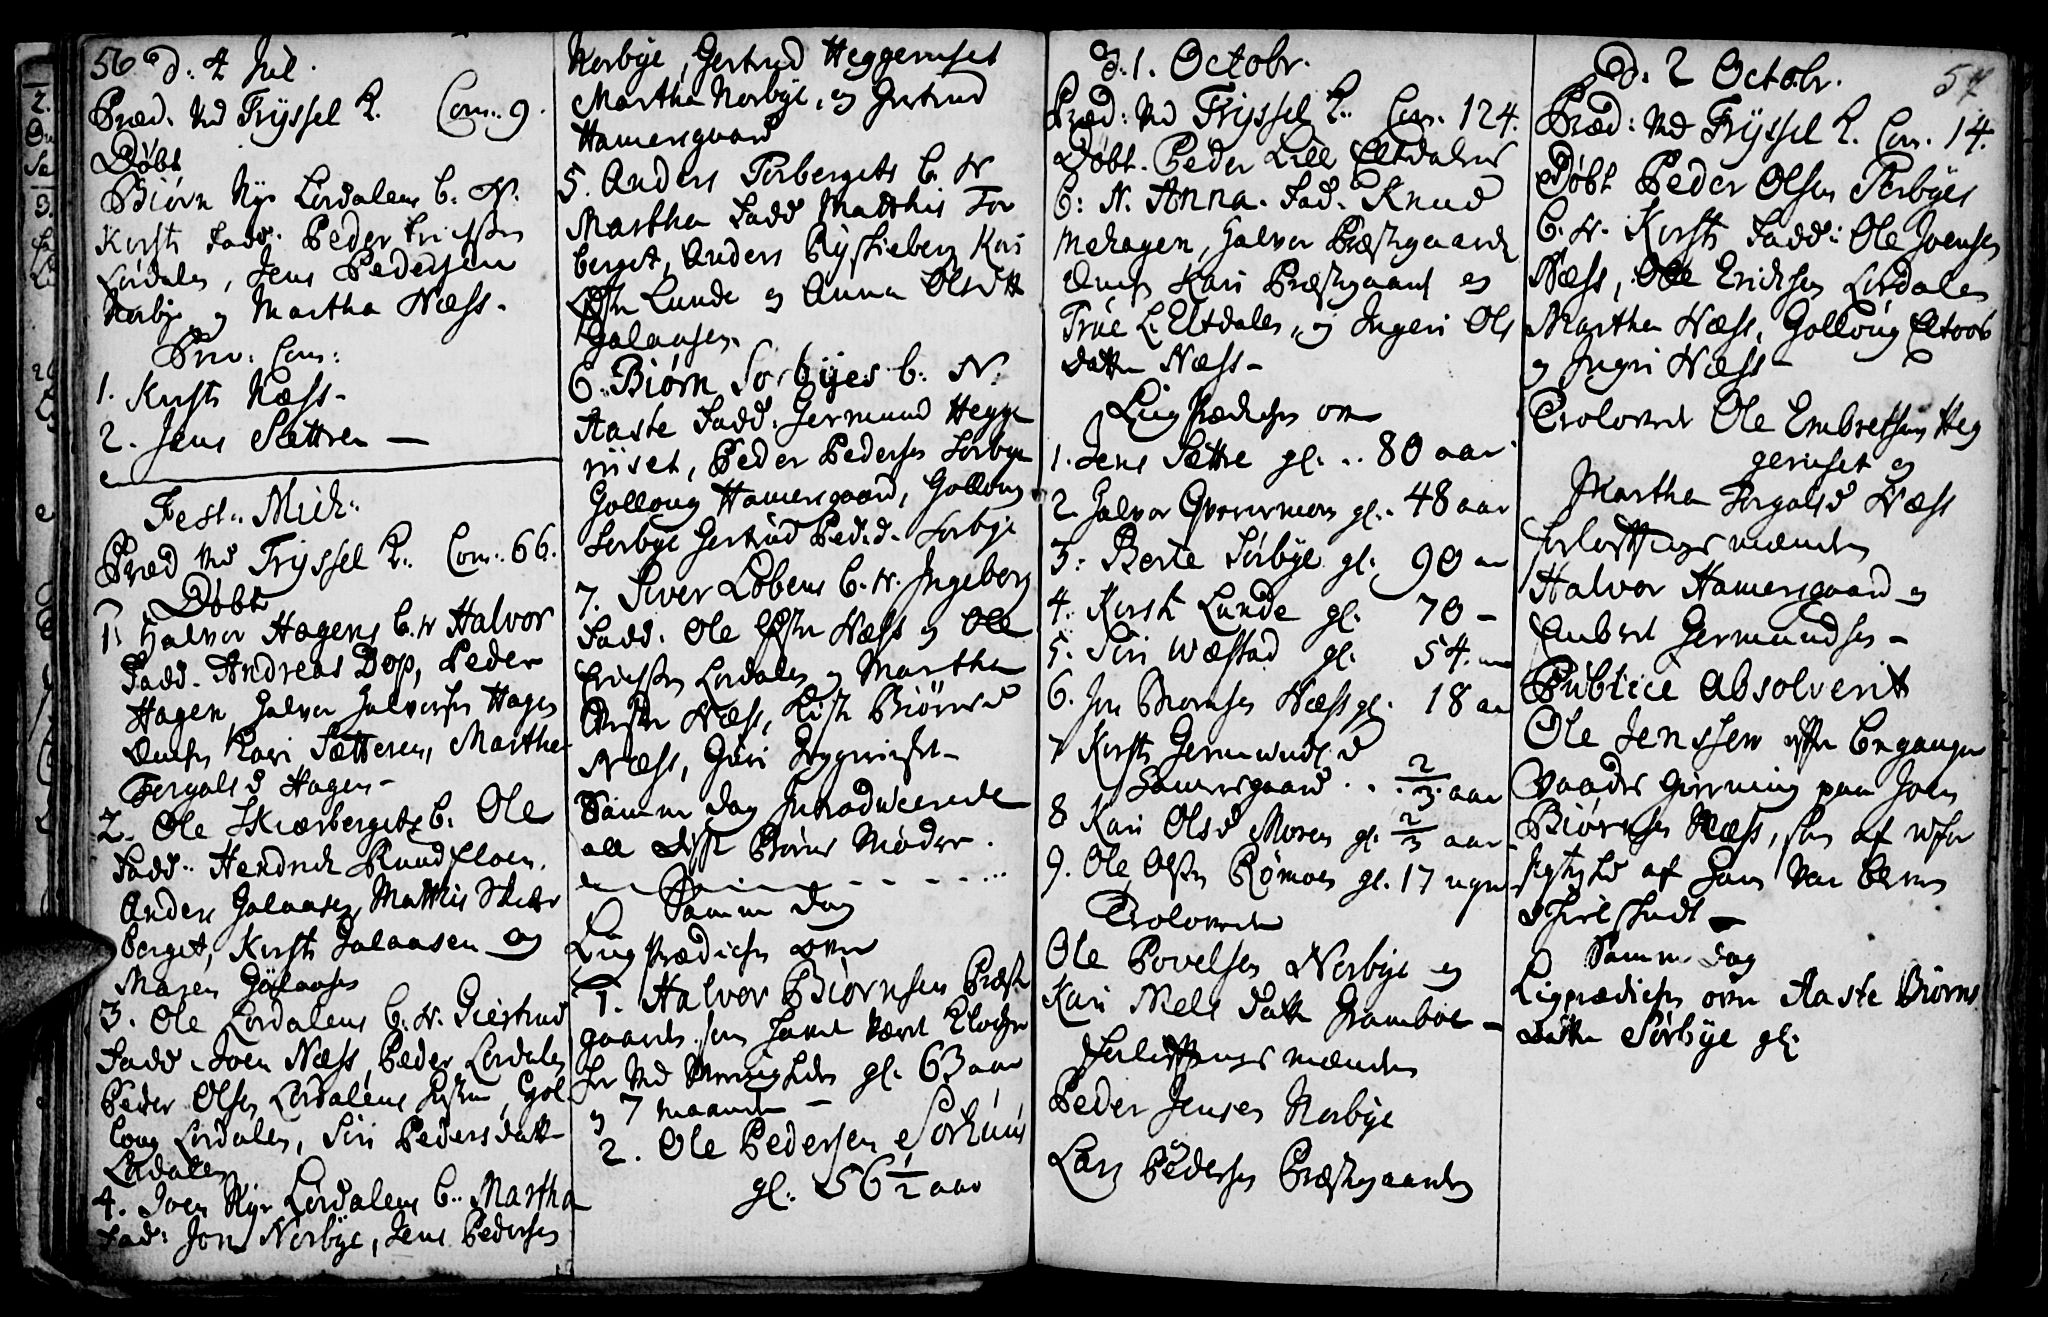 56 d. 4 Jul.
Præd. ved Trÿssel K. Com. 9.
Døbt
Biørn Nÿr Lørdalens b. N.
Kirsti Fadd. Peder Erichsen
Lørdalen, Jens Pedersen
Norbÿe og Martha Næss.
Priv. Com:
1. Kirsti Næss-
2. Jens Sættren —
Fest. Mich.
Præd ved Trÿssel K. Com. 66.
Døbt
1. Halvor Hagens b. N Halvor
Fadd. Andreas Dop, Peder
Hagen, Halvor Halvorsen Hagen
Kari Sætteren, Martha
Torgalsd Hagen-
2. Ole Skiærbergets b. Ole
Fadd. Hendrich Rundfloen,
Anders Galaasen, Matthis Skier
berget, Kirsti Galaasen og
Maren Galaasen
3. Ole Lørdalens b. N. Giertrud
Fadd. Joen Næss, Peder Lørdalen
Peder Olsen Lørdalens Gol
loug Lørdalen, Siri Pedersdatter
Lørdalen
4. Joen Nÿr Lørdalens b. Martha
Fad: Jon Norbÿe, Jens Pedersen
Norbÿe, Gertrud Heggeriiset
Martha Norbÿe, og Gertrud
Hamersgaard
5. Anders Torbergets b. N
Martha Fadd Matthis Tor
berget, Anders Rÿskieberg Kari
Lunde og Anna Olsdtt
Galaasen.
6. Biørn Sorbÿes b. N.
Aaste Fadd. Germund Hegge
riiset, Peder Pedersen Sorbÿe
Golloug Hamersgaard, Golloug
Sorbÿe Gertrud Ped:d. Sorbÿe
7. Siver Løbens b. N. Ingeborg
Fadd. Ole Næss og Ole
Erichsen Lørdalen og Martha
Næss, Kisti Biørnsd
Næss, Guri Heggeriiset-
Samme dag Introduceerede
alle disse Børns Mødre.
Samme dag
Liigprædichen over
1. Halvor Biørnsen Præst
gaarden som hafver været Klocher
her ved gl. 63 aar
og 7 maaneder -
2. Ole Pedersen Sorhuus
gl. 56 1/2 aar
d. 1. Octobr.
Præd: ved Trÿssel K. Com. 124.
Døbt. Peder Lill Eltdalens
b: N. Anna. Fad. Knud
Mehagen, Halvor Præstgaarden
Kari Præstgaard og
Trüe L. Eltdalen, og Ingeri Ols
datter Næss-
Liigprædichen over
1. Jens Sættre gl. .. 80 aar
2. Halvor gl. 48 aar
3. Berte Sörbÿe gl. 90 aar
4. Kirsti Lunde gl. 70 -
5. Siri Wæstad gl. 54. aar
6. Jon Biørnsen Næss gl. 18 aar
7 Kirsti Germunds d
Hamersgaard . . 2/3 aar
8 Kari Olsd Moren gl. 2/3 aar
9. Ole Olsen Rømoen gl. 17 uger
Trolovede
Ole Povelsen Norbÿe og
Kari Niels datter Gramboe -
Forløftnings mænden
Peder Jensen Norbÿe
og
Lars Pedersen Præstegaarden
57
d. 2 Octobr.
Præd: ved Trÿssel K. Com. 14.
Døbt Peder Olsen Sorbÿes
b. N. Kirsti Fadd: Ole Joensen
Næss, Ole Erichsen Lørdalen
Martha Næss, Golloug
og Ingri Næss-
Trolovede Ole Embretsen Heg
geriiset og
Martha Torgalsd Næss
Forløftnings mænden
Halvor Hamersgaard og
Embret Germundsen -
Publice Absolverit
Ole Jenssen efter begangen
vaades gierning paa Joen
Biørnsen Næss, som af ufor
sigtighed af ham var bleven
ihiel skudt -
Samme dag
Ligprædichen over Aaste Biørns
datter Sørbÿe gl: